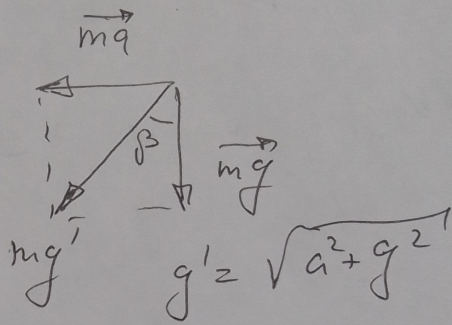 ma
β
mg
mg'
g' = √(a² + g²)